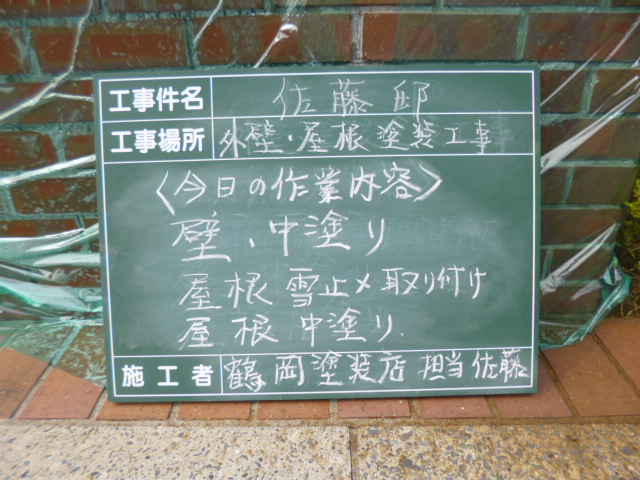 工事件名 佐藤邸
工事場所 外壁・屋根塗装工事
〈今日の作業内容〉
壁、中塗り
屋根 雪止メ取り付け
屋根 中塗り.
施工者 鶴岡塗装店 担当佐藤